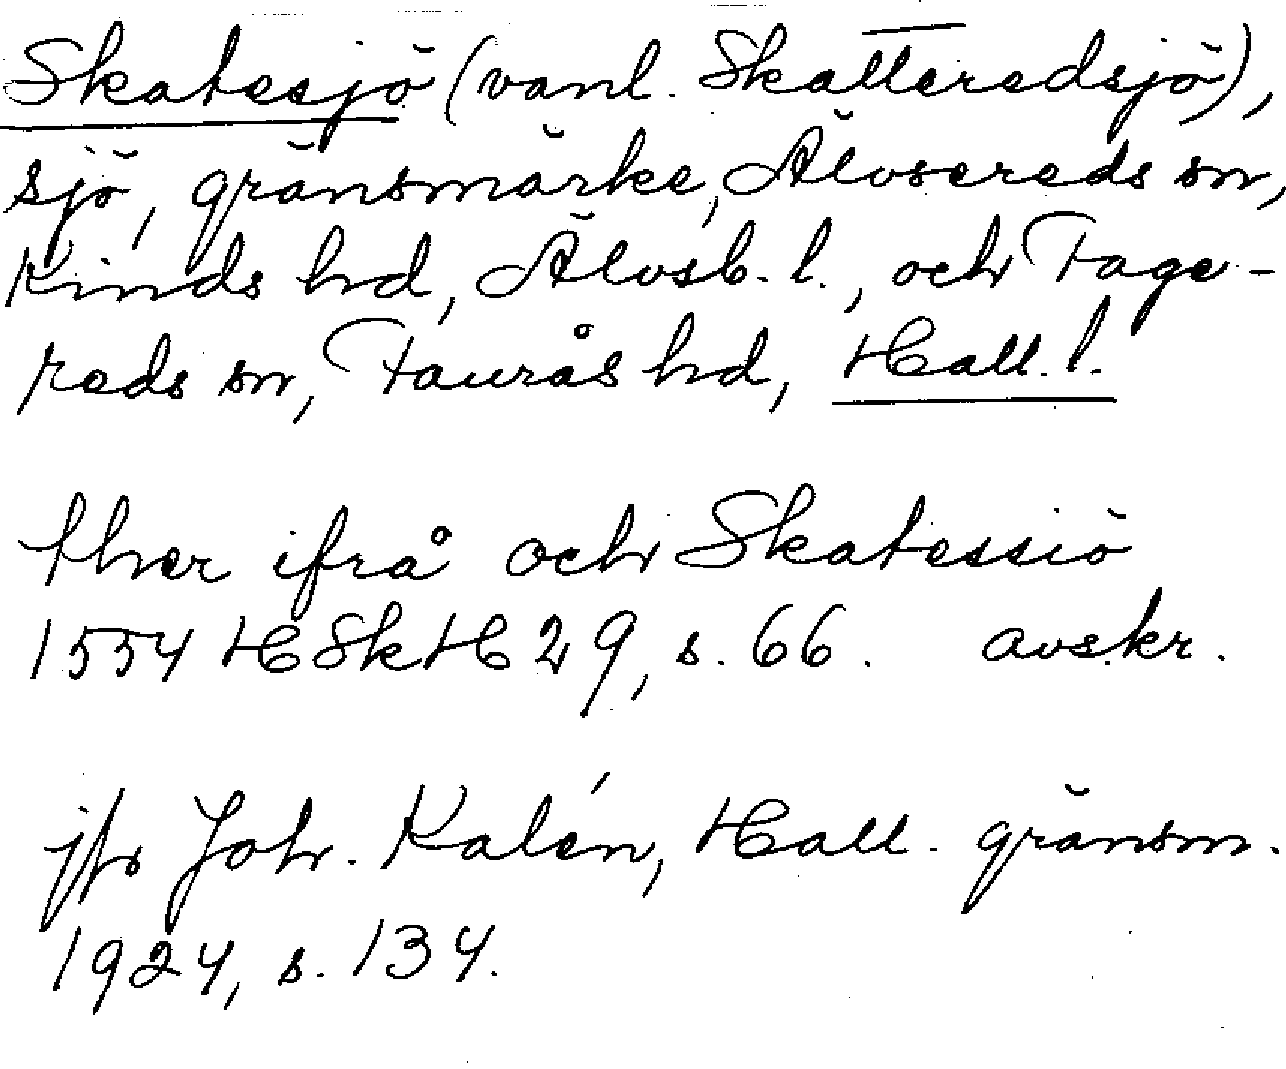 Skatesjö (vanl. Skatteredsjö),
sjö, gränsmärke, Älvsereds sn,
Kinds hd, Älvsb. l., och Fage-
reds sn, Faurås hd, Hall. l.
ther ifrå och Skatessiö
1554 HSkH 29, s. 66. avskr.
jfr Joh. Kalén, Hall. gränsm.
1924, s. 134.